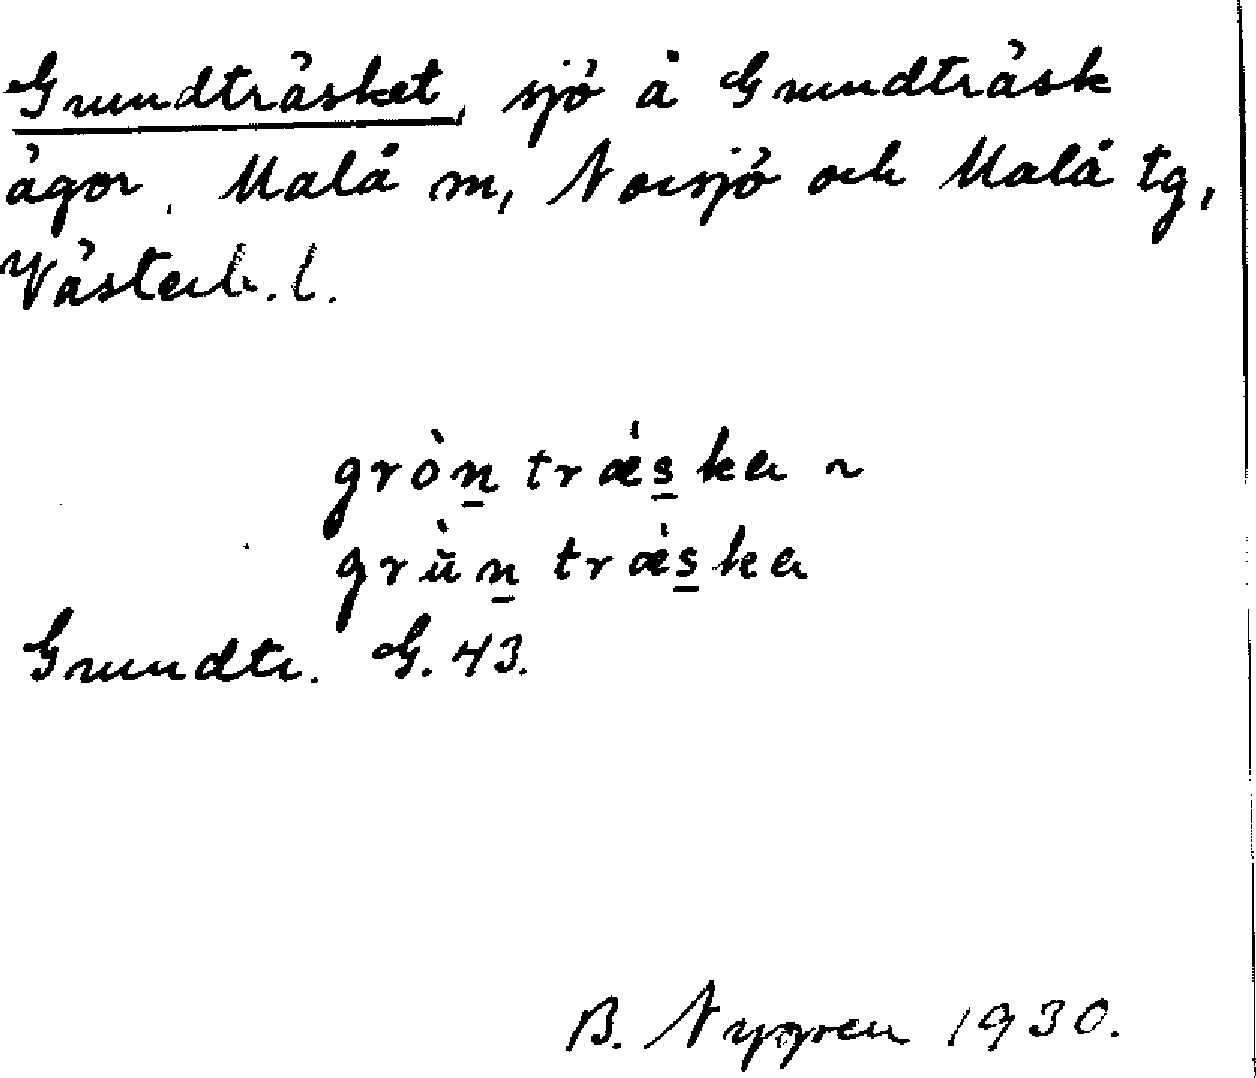 Grundträsket, sjö å Grundträsk
ägor, Malå sn, Norsjö och Malå tg,
Västerb. l.
gròn̲ træ̀s̲ka ~
grùn̲ træ̀s̲ka
Grundtr. G. 43.
B. Nygren 1930.